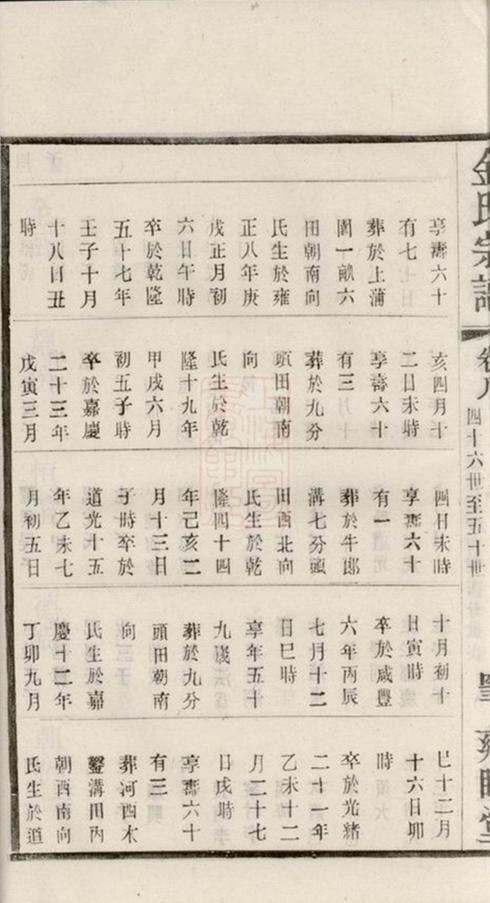 金氏宗譜
卷八
四十六世至五十世
雍睦堂
享壽六十
有七
葬於上蒲
一畝六
田朝南向
氏生於雍
正八年庚
戌正月初
六日午時
卒於乾隆
五十七年
壬子十月
十八日丑
時
亥四月十
二日未時
享壽六十
有三
葬於九分
頭田朝南
向
氏生於乾
隆十九年
甲戌六月
初五子時
卒於嘉慶
二十三年
戊寅三月
四日未時
享壽六十
有一
葬於牛郎
溝七分頭
田西北向
氏生於乾
隆四十四
年己亥二
月十三日
子時卒於
道光十五
年乙未七
月初五日
十月初十
日寅時
卒於咸豐
六年丙辰
七月十二
日巳時
享年五十
九歲
葬於九分
頭田朝南
向
氏生於嘉
慶十二年
丁卯九月
巳十二月
十六日卯
時
卒於光緒
二十一年
乙未十二
月二十七
日戌時
享壽六十
有三
葬河西木
鑿溝田丙
朝西南向
氏生於道